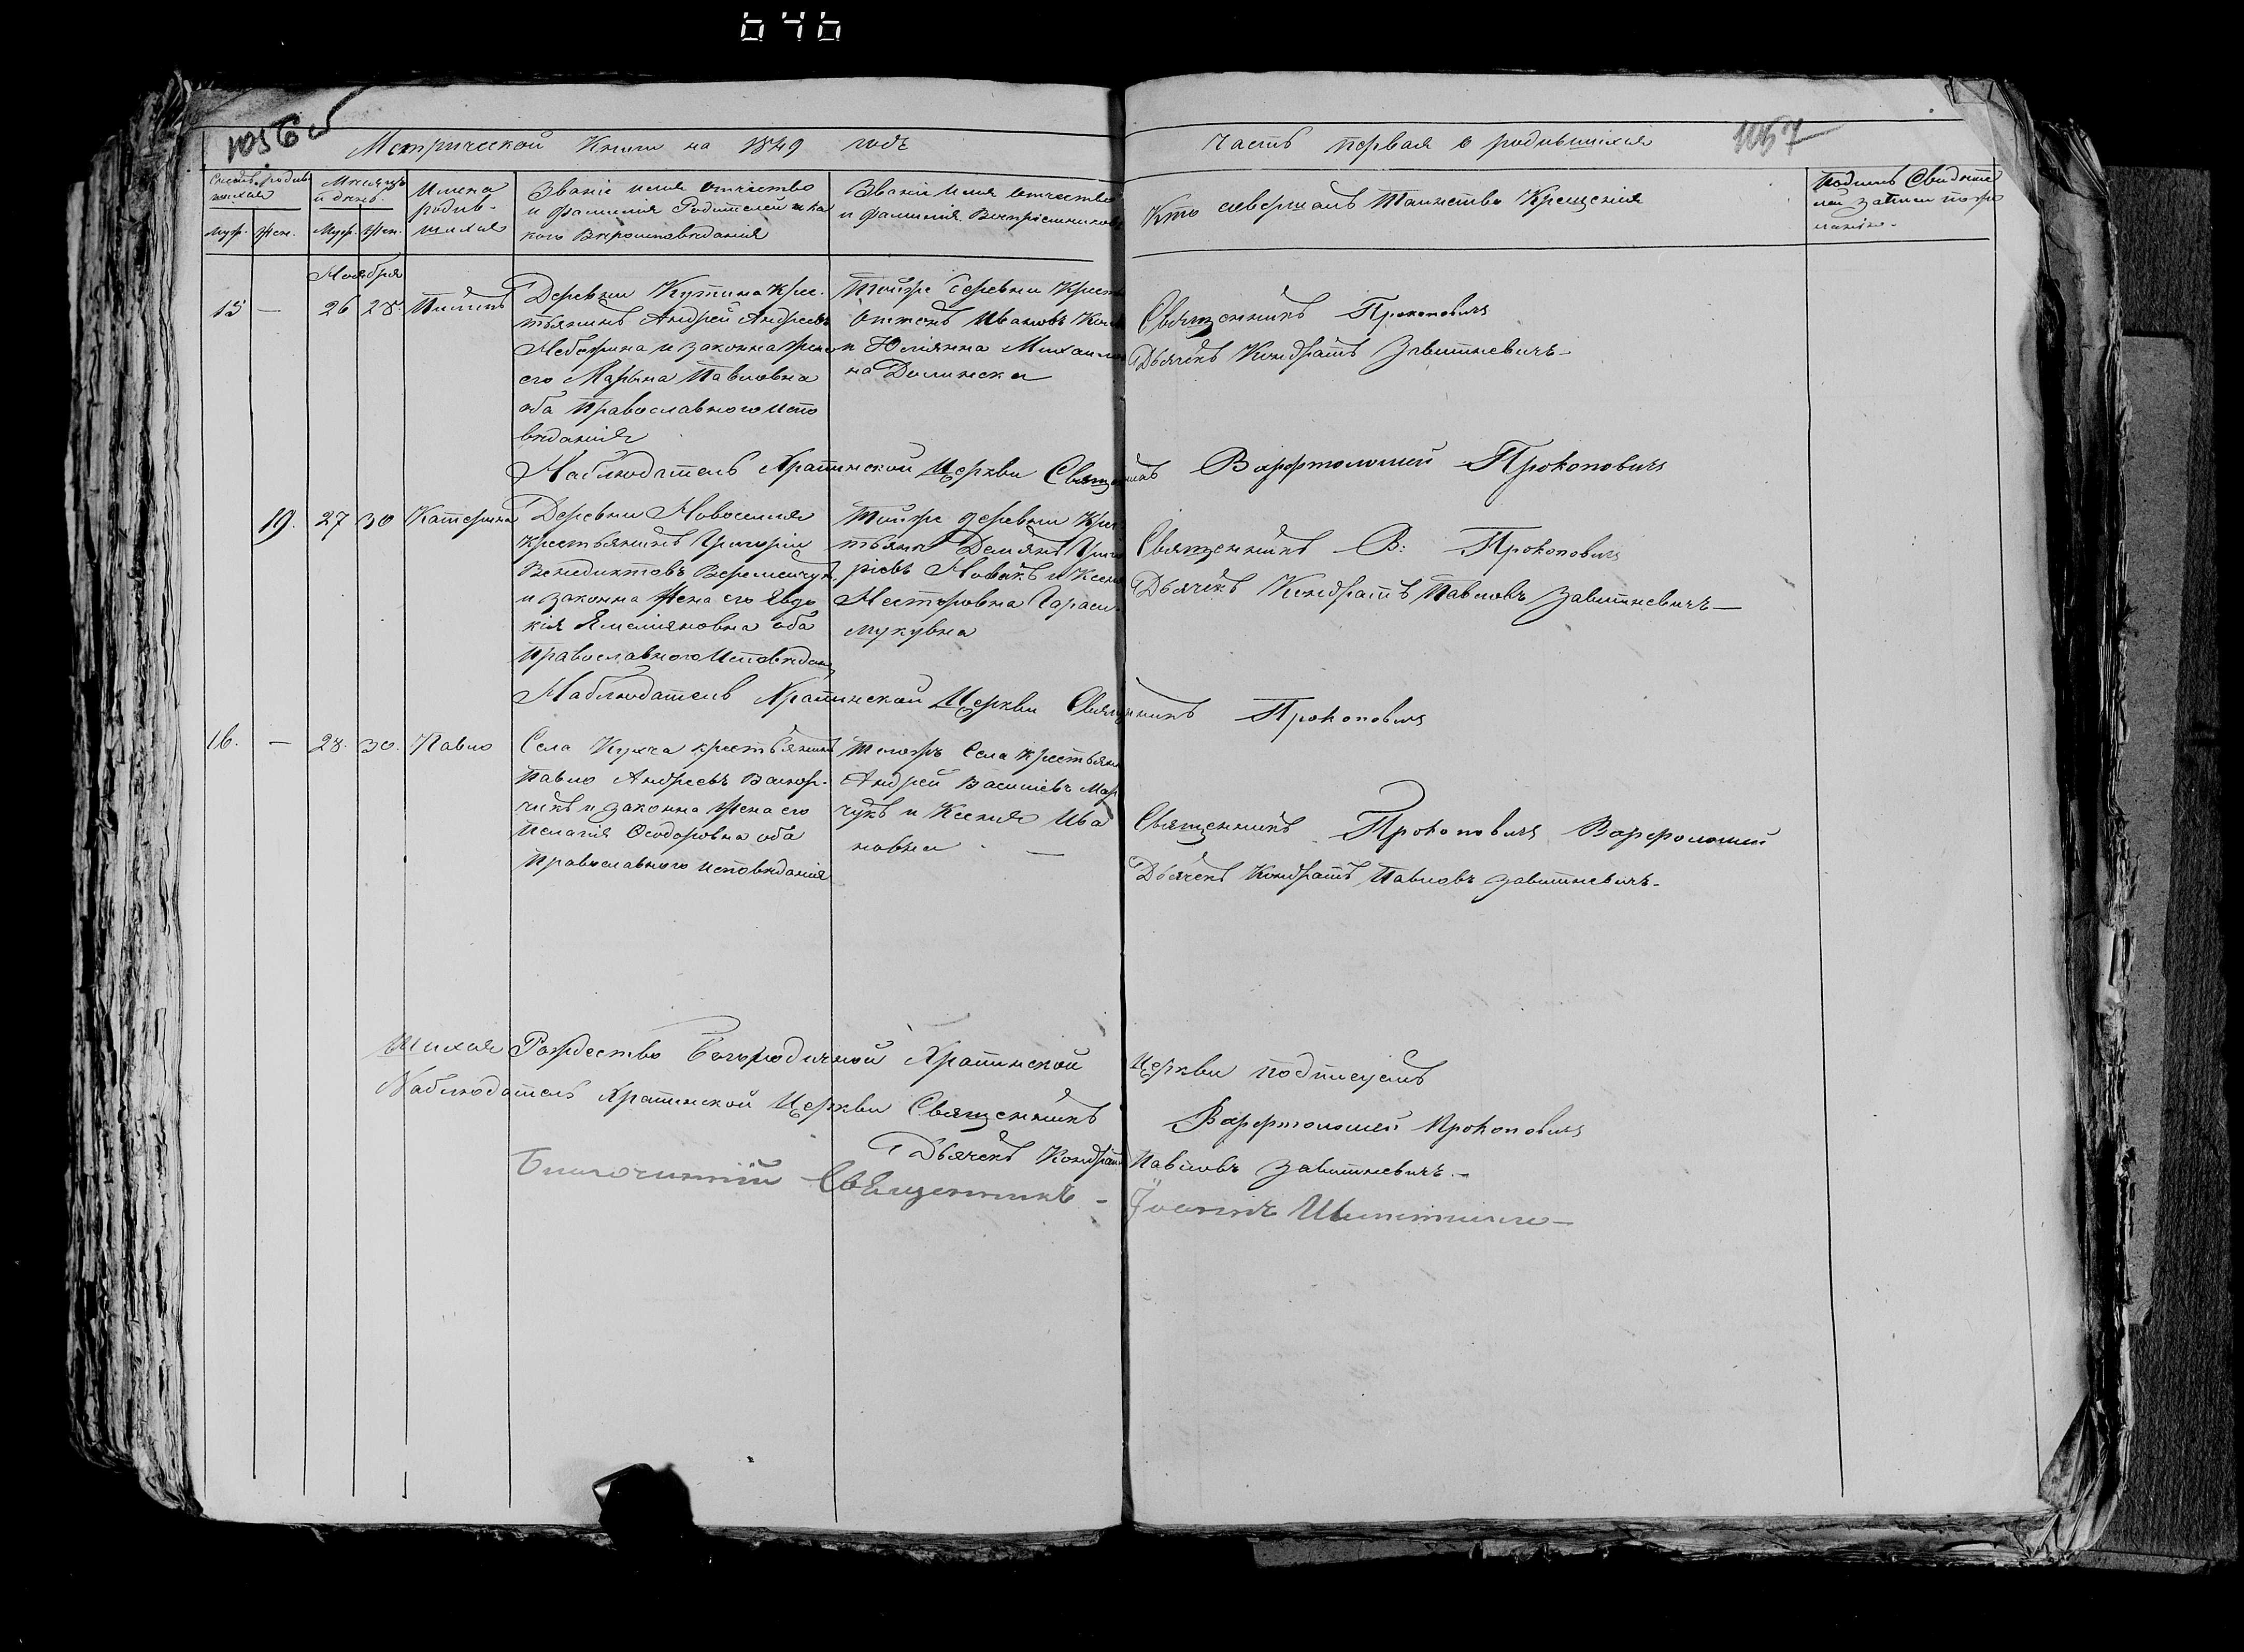 646
1056
Метрической Книги на 1849 годъ
Часть первая о родившихся
1057
Счетъ родив
шихся
Муж. Жен.
Мѣсяцъ
и день.
Муж. Жен.
Имена
родив-
шихся
Званіе имя отчество
и фамилія Родителей и ка
кого Вѣроисповѣданія
Званіе Имя Отчество
и фамилія Воспріемниковъ
Кто совершалъ Таинство Крещенія
Подпись Свидѣте
лей записи по же
ланію.
Ноября
15 — 26 28.
Деревни Кутина Крес-
тьянинъ Андрей Андреевъ
и законна жена
его Марына Павловна
оба Православного Испо
вѣданія
Тойже Деревни Крест
Ивановъ
и Юліянна Михаило
на Долинска
Священникъ Прокоповичъ
Дьячекъ Кондратъ Завитневичъ —
Наблюдатель Храпинской Церкви Священникъ Варфтоломей Прокоповичъ
19. 27 30 Катерина
Деревни Новоселия
крестьянинъ Григорій
Венедиктовъ Веремейчукъ
и законна жена его Явдо
кія Ямелияновна оба
Православного Исповѣдан
Тойже деревни Крес
тьяне Демянъ Григо
ріевъ Новакъ и Ксенія
Несторовна Гараси
мукувна
Священникъ В: Прокоповичъ
Дьячекъ Кондратъ Павловъ Завитневичъ —
Наблюдатель Храпинской Церкви Священникъ Прокоповичъ
16. — 28. 30. Павло
Села Кухча крестьянинъ
Павло Андреевъ
чикъ и законна жена его
Пелагія Ѳеодоровна оба
Православного исповѣданія
Тогожъ Села крестьяне
Андрей Василіевъ Мар
чукъ и Ксенія Ива
новна —
Священникъ Прокоповичъ Варфоломей
Дьячекъ Кондратъ Павловъ Завитневичъ —
Рождество Богородичной Храпинской Церкви
Наблюдатель Храпинской Церкви Священникъ Варфтоломей Прокоповичъ
Дьячекъ Кондратъ Павловъ Завитневичъ. —
Благочинній Священникъ — Іоаннъ